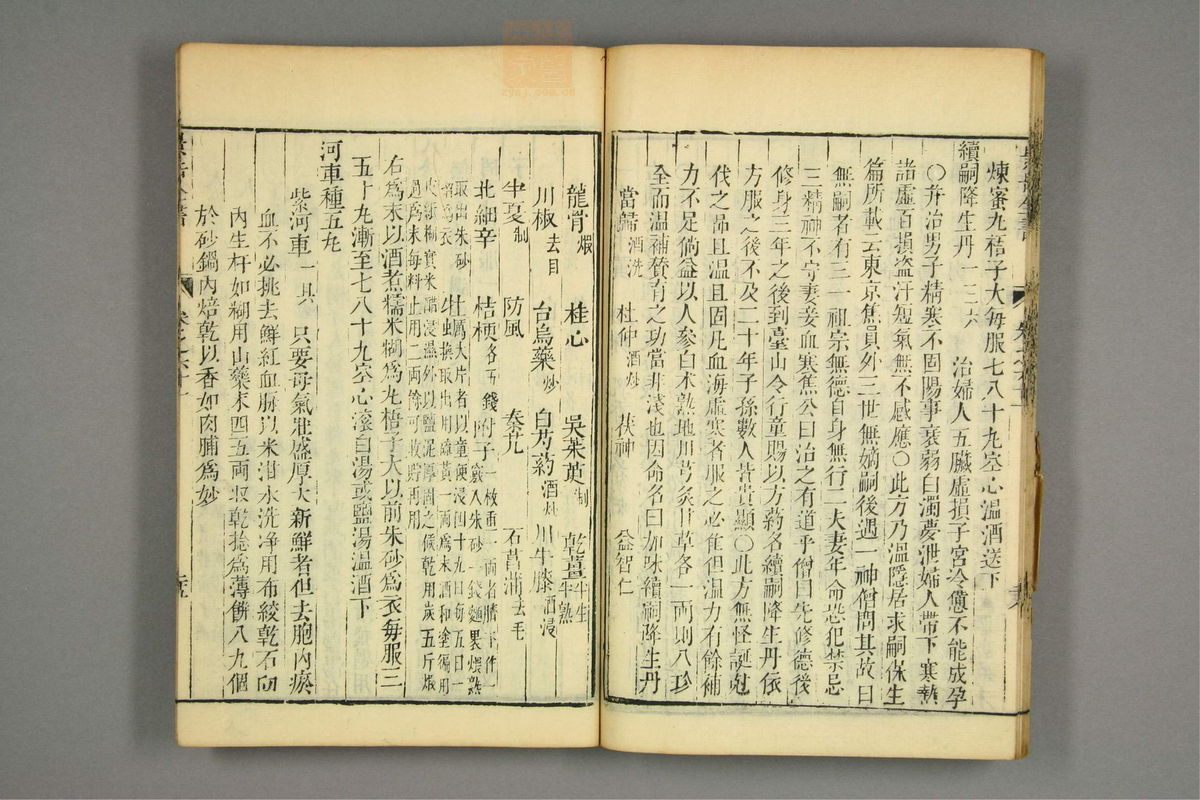 煉蜜丸梧子大每服七八十丸空心溫酒送下
續嗣降生丹一三六 治婦人五臟虛損子宮冷憊不能成孕
〇并治男子精寒不固陽事衰弱白濁夢泄婦人帶下寒熱
諸虛百損盜汗短氣無不感應〇此方乃溫隱居求嗣保生
篇所載云東京焦員外三世無嫡嗣後遇一神僧問其故曰
無嗣者有三一祖宗無德自身無行二夫妻年命恐犯禁忌
三精神不守妻妾血寒焦公曰治之有道乎僧曰先修德後
修身三年之後到臺山令行童賜以方藥名續嗣降生丹依
方服之後不及二十年子孫數人皆貴顯〇此方無怪誕尅
伐之品且溫且固凡血海虛寒者服之必佳但溫力有餘補
力不足倘益以人參白术熟地川芎炙甘草各一兩則八珍
全而溫補贊育之功當非淺也因命名曰加味續嗣降生丹
當歸酒洗 杜仲酒炒 茯神 益智仁
龍骨煆 桂心 吳茱萸制 乾薑半生半熟
川椒去目 台烏藥炒 白芍藥酒炒 川牛膝酒浸
半夏制 防風 秦艽 石菖蒲去毛
北細辛 桔梗各五錢 附子一枚重一兩者臍下作一竅入朱砂一錢麵裹煨熟
取出朱砂留為衣 牡蠣大片者以童便浸四十九日每五日一換取出用硫黃一兩為末酒和塗徧用
皮紙糊實米醋浸濕外以鹽泥厚固之候乾用炭五斤煆
過為末每料止用二兩餘可收貯再用
右為末以酒煮糯米糊為丸梧子大以前朱砂為衣每服三
五十丸漸至七八十丸空心滾白湯或鹽湯溫酒下
河車種玉丸
紫河車一具 只要母氣壯盛厚大新鮮者但去胞內瘀
血不必挑去鮮紅血脈以米泔水洗净用布絞乾石臼
內生杵如糊用山藥末四五兩收乾捻為薄餅八九個
於砂鍋內焙乾以香如肉脯為妙